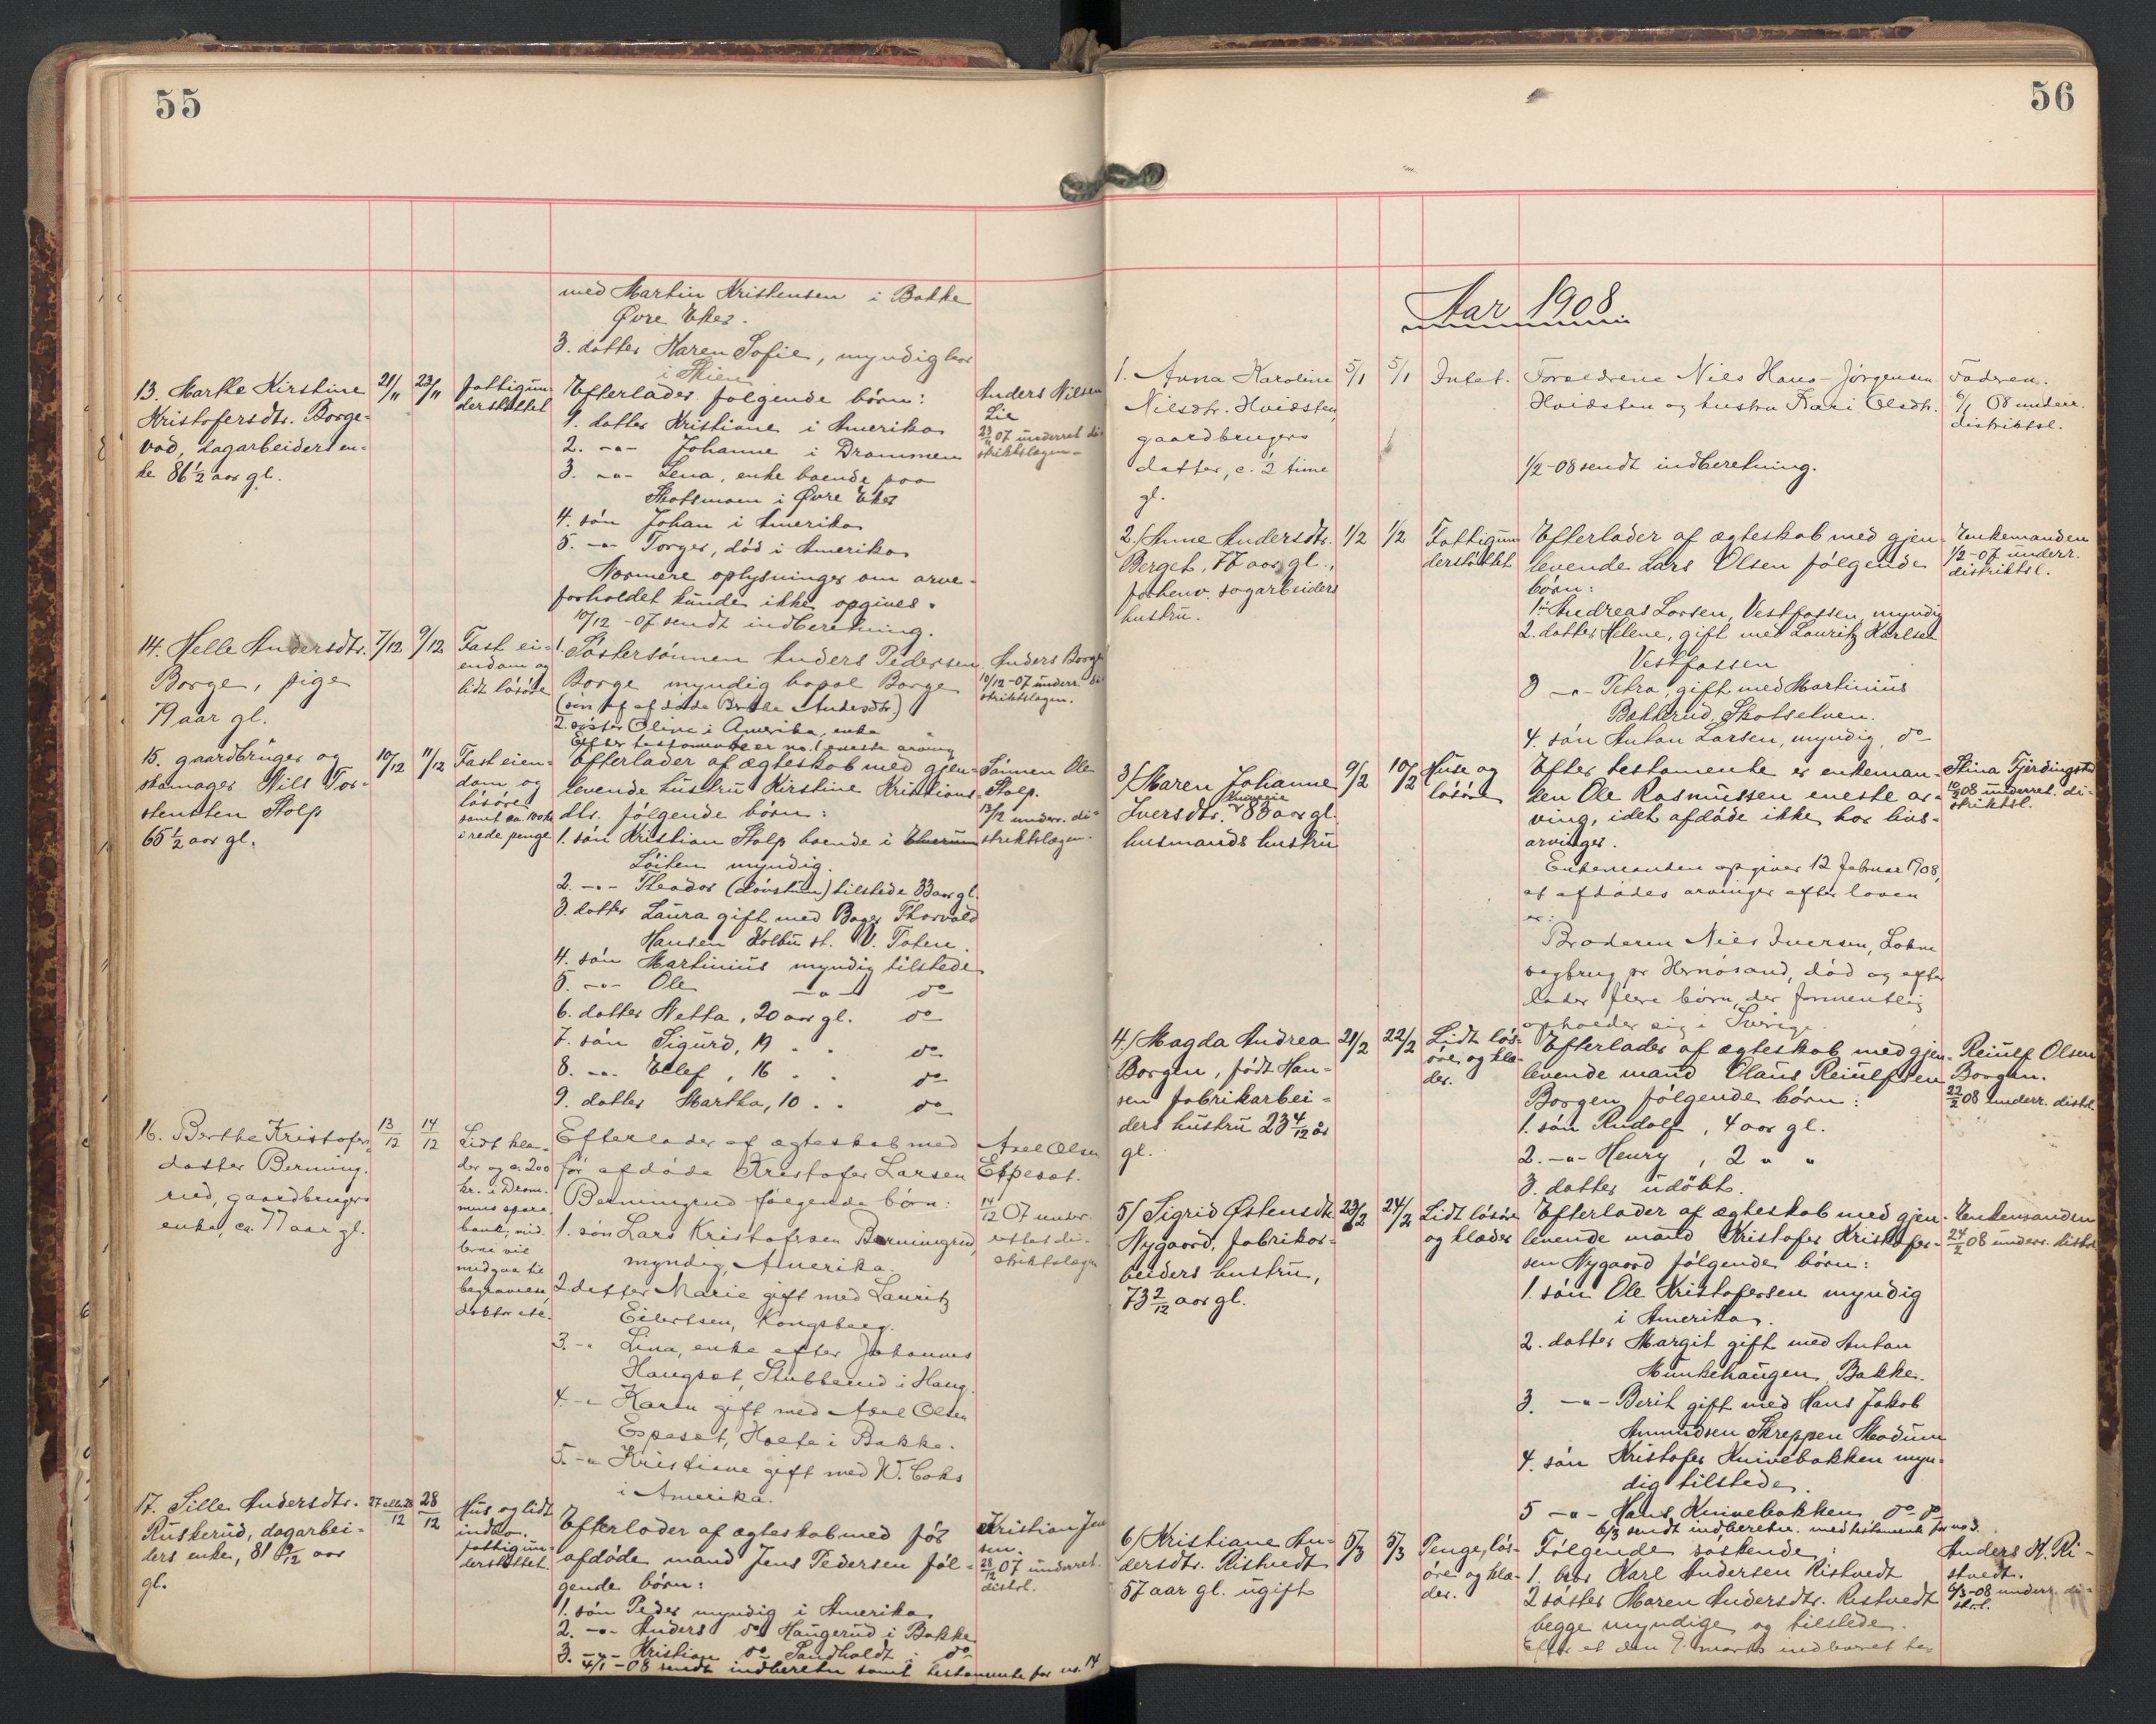 55
med Martin Kristensen i Bakke
Øvre Eker.
3. datter Karen Sofie, myndig bor
i Skien
13. Marthe Kirstine
Kristofersdtr. Borge-
vad, dagarbeiders en-
ke 86 1/2 aar gl.
21/11
23/11
Fattigun-
derstøttet
Efterlader følgende børn:
1. datter Kristiane i Amerika
2. -"- Johanne i Drammen
3. -"- Lena, enke boende paa
Skotsmoen i Øvre Eker
4. søn Johan i Amerika
5. -"- Torger, død i Amerika
Nærmere oplysninger om arve-
forholdet kunde ikke opgives.
10/12 -07 sendt indberetning.
Anders Nilsen
Lie
23/11 07 underret di-
striktslægen
14. Helle Andersdtr.
Borge, pige
79 aar gl.
7/12
9/12
Fast ei-
endom og
lidt løsøre
1. Søstersønnen Anders Pedersen
Borge myndig bopæl Borge
(søn af afdøde Andersdtr.)
2. søster Oline i Amerika, enke
Efter testamente er no. 1 eneste arving
Anders Borge
10/12-07 underr. di-
striktslægen.
15. gaardbruger og
skomager Nils Tor-
stensen Stolp
65 1/2 aar gl.
10/12
11/12
Fast eien-
dom og
løsøre
samt ca. 100 kr
i rede penge
Efterlader af ægteskab med gjen-
levende hustru Kirstine Kristians-
dtr. følgende børn:
1. søn Kristian Stolp boende i Elverum
Løiten myndig.
2. -"- Theodor (døvstum) tilstede 33 aar gl.
3. datter Laura gift med Bager Thorvald
Hansen Kolbu st. V. Toten.
4. søn Martinius myndig tilstede
5. -"- Ole -"- do
6. datter Netta, 20 aar gl. do
7. søn Sigurd, 19 " " do
8. -"- Elef, 16 " " do
9. datter Martha, 10 " " do
Sønnen Ole
Stolp.
13/12 underr. di-
striktslægen.
16. Berthe Kristofers-
datter Berming-
rud, gaardbrugers
enke, ca. 77 aar gl.
13/12
14/12
Lidt klæ-
der og ca. 200
kr. i Dram-
mens spare-
bank; mid-
lerne vil
medgaa til
begravelse,
doktor etc.
Efterlader af ægteskab med
før afdøde Kristofer Larsen
Bermingrud følgende børn:
1. søn Lars Kristofersen Bermingrud,
myndig, Amerika.
2. datter Marie gift med Lauritz
Eilertsen, Kongsberg.
3. -" Lina, enke efter Johannes
Haugset, Stubberud i Haug.
4. -" Karen gift med Axel Olsen
Espeset, Hoele i Bakke.
5. -" Kristiane gift med W. Coks
i Amerika.
Axel Olsen
Espeset.
14/12 07 under-
rettet di-
striktslægen
17. Sille Andersdtr.
Ruskerud, dagarbei-
ders enke, 81 9/12 aar
gl.
27 eller 28/12
28/12
Hus og lidt
indbo.
fattigun-
derstøttet.
Efterlader af ægteskab med før
afdøde mand Jens Pedersen føl-
gende børn:
1. søn Peder myndig i Amerika
2. -"- Anders do Haugerud i Bakke
3. -"- Kristian do Sandholdt i do
4/1 -08 sendt indberetn. samt testamente for no. 14
Kristian Jen-
sen.
28/12 07 underret.
distrl.
56
Aar 1908
1. Anna Karoline
Nilsdtr. Hvidsten,
gaardbrugers
datter, c. 1/2 time
gl.
5/1
5/1
Intet.
Forældrene Nils Hans-Jørgensen
Hvidsten og hustru Kari Olsdtr.
1/2-08 sendt indberetning.
Faderen.
6/1 08 underr.
distriktsl.
2./ Anne Andersdtr.
Berget, 77 aar gl.,
forhenv. sagarbeiders
hustru.
1/2
1/2
Fattigun-
derstøttet
Efterlader af ægteskab med gjen-
levende Lars Olsen følgende
børn:
1. Andreas Larsen, Vestfossen, myndig
2. datter Helene, gift med Lauritz Karlsen
Vestfossen
3 -"- Petra, gift med Martinius
Bækkerud, Skotselven.
4. søn Anton Larsen, myndig, do
Enkemanden
1/2-07 underr.
distriktsl.
3/ Maren Johanne
Iversdtr. 83 aar gl.
husmands hustru
9/2
10/2
Huse og
løsøre
Efter testamente er enkeman-
den Ole Rasmussen eneste ar-
ving, idet afdøde ikke har livs-
arvinger.
Enkemanden opgiver 12 februar 1908,
at afdødes arvinger efter loven
er:
Broderen Niels Iversen,
sagbrug pr Hernøsand, død og efter
lader flere børn, der formentlig
opholder sig i Sverige.
Stina Fjerdingstad
10/2 08 underret. di-
striktsl.
4./ Magda Andrea
Borgen, født Han-
sen fabrikarbei-
ders hustru 23 4/12 år
gl.
21/2
22/2
Lidt løs-
øre og klæ-
der.
Efterlader af ægteskab med gjen-
levende mand Olaus Reiulfsen
Borgen følgende børn:
1. søn Rudolf, 4 aar gl.
2. -"- Henry, 2 " "
3. datter udøbt.
Reiulf Olsen
Borgen.
22/2 08 underr. distrl.
5/ Sigrid Østensdtr.
Nygaard, fabrikar-
beiders hustru,
73 2/12 aar gl.
23/2
24/2
Lidt løsøre
og klæder
Efterlader af ægteskab med gjen-
levende mand Kristofer Kristofer-
sen Nygaard følgende børn:
1. søn Ole Kristofersen myndig
i Amerika.
2. datter Margit gift med Anton
Munkehaugen, Bakke.
3. -"- Berit gift med Hans Jakob
Amundsen Skreppen Modum
4. søn Kristofer Knivebakken myn-
dig tilstede.
5 -"- Hans Knivebakken do do
6/3 sendt indberetn. med testamente for no 3.
Enkemanden
24/2 08 underr. distrl
6/ Kristiane An-
dersdtr. Ristvedt
57 aar gl. ugift
5/3
5/3
Penge, løs-
øre og klæ-
der.
Følgende søskende:
1. bror Karl Andersen Ristvedt
2 søster Maren Andersdtr. Ristvedt
begge myndige og tilstede.
Efter et den 9. marts indleveret te-
Anders K. Ri-
stvedt.
6/3-08 underr. di-
strl.